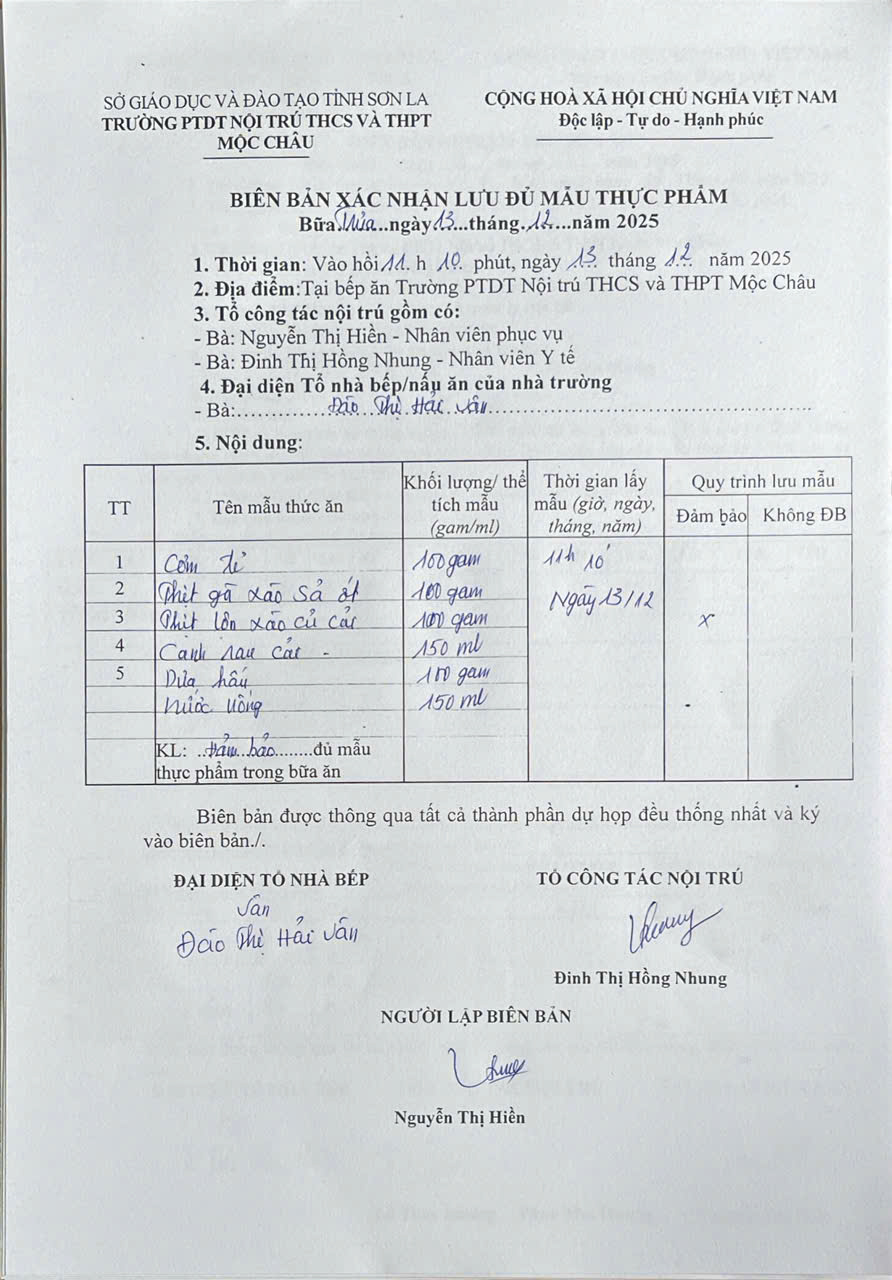 SỞ GIÁO DỤC VÀ ĐÀO TẠO TỈNH SƠN LA
TRƯỜNG PTDT NỘI TRÚ THCS VÀ THPT
MỘC CHÂU
CỘNG HOÀ XÃ HỘI CHỦ NGHĨA VIỆT NAM
Độc lập - Tự do - Hạnh phúc
BIÊN BẢN XÁC NHẬN LƯU ĐỦ MẪU THỰC PHẨM
Bữa ...ngày 13...tháng.12....năm 2025
1. Thời gian: Vào hồi 11. h 10 phút, ngày 13 tháng 12 năm 2025
2. Địa điểm:Tại bếp ăn Trường PTDT Nội trú THCS và THPT Mộc Châu
3. Tổ công tác nội trú gồm có:
- Bà: Nguyễn Thị Hiền - Nhân viên phục vụ
- Bà: Đinh Thị Hồng Nhung - Nhân viên Y tế
4. Đại diện Tổ nhà bếp/nấu ăn của nhà trường
- Bà:.............Đào Thị Hải Vân.............
5. Nội dung:
TT Tên mẫu thức ăn Khối lượng/ thể tích mẫu (gam/ml) Thời gian lấy mẫu (giờ, ngày, tháng, năm) Quy trình lưu mẫu
Đảm bảo Không ĐB
1 Cơm tẻ 100 gam 11h 10'
2 Thịt gà xào sả ớt 100 gam Ngày 13/12
3 Thịt lợn xào củ cải 100 gam x
4 Canh rau cải - 150 ml
5 Dưa hấu 100 gam
Nước uống 150 ml
KL: ..Đảm bảo........đủ mẫu
thực phẩm trong bữa ăn
Biên bản được thông qua tất cả thành phần dự họp đều thống nhất và ký
vào biên bản./.
ĐẠI DIỆN TỔ NHÀ BẾP
Vân
Đào Thị Hải Vân
TỔ CÔNG TÁC NỘI TRÚ
Đinh Thị Hồng Nhung
NGƯỜI LẬP BIÊN BẢN
Nguyễn Thị Hiền